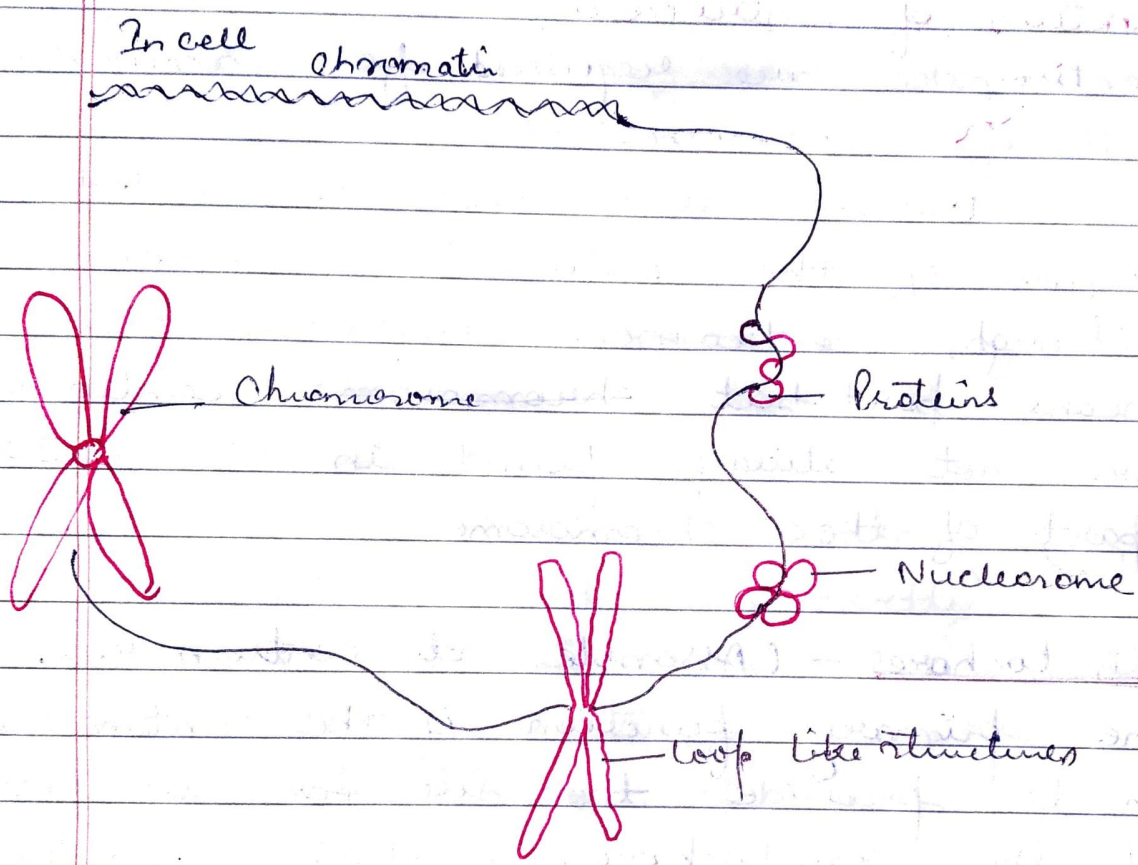 In cell
chromatin
Chromosome
Proteins
Nucleosome
loop like structures